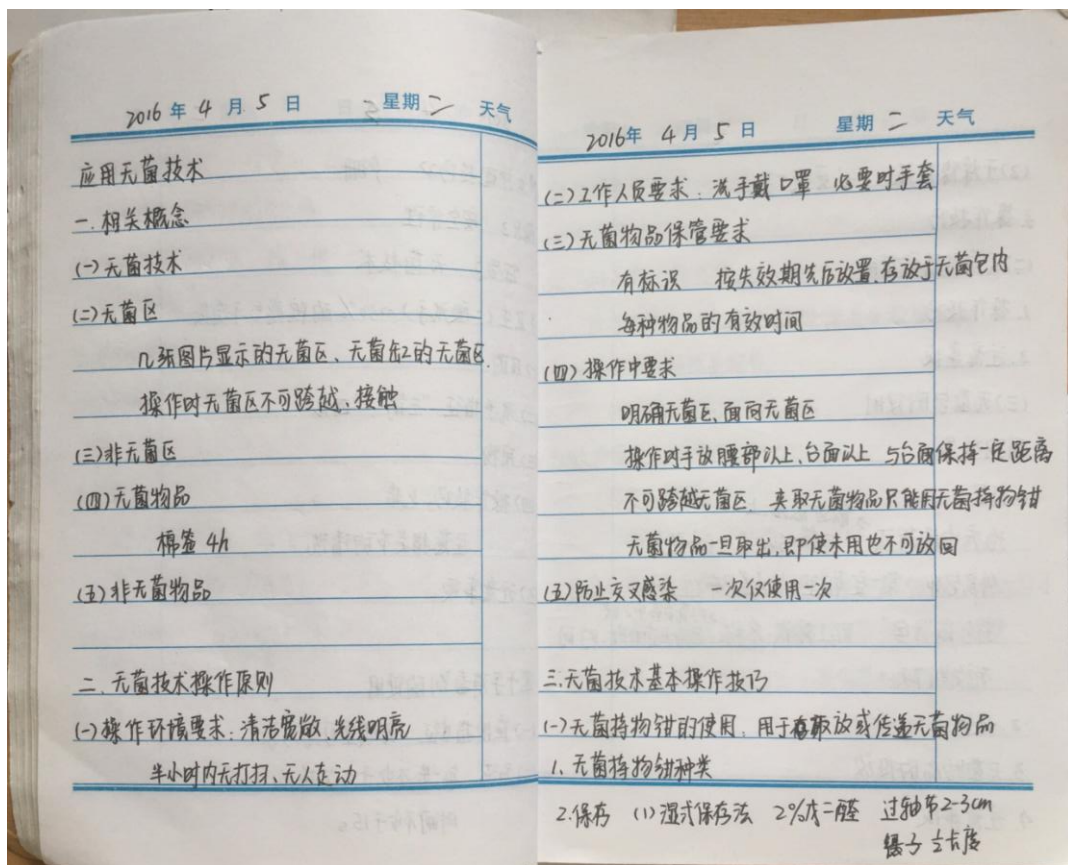 2016 年 4 月 5 日 星期 二 天气
应用无菌技术
一.相关概念
(一)无菌技术
(二)无菌区
几张图片显示的无菌区、无菌缸的无菌区
操作时无菌区不可跨越、接触
(三)非无菌区
(四)无菌物品
棉签 4h
(五)非无菌物品
二、无菌技术操作原则
(一)操作环境要求:清洁宽敞、光线明亮
半小时内无打扫、无人走动
2016年 4月 5 日 星期 二 天气
(二)工作人员要求:洗手戴口罩 必要时手套
(三)无菌物品保管要求
有标识 按失效期先后放置、存放于无菌包内
每种物品的有效时间
(四)操作中要求
明确无菌区、面向无菌区
操作时手放腰部以上、台面以上 与台面保持一定距离
不可跨越无菌区 夹取无菌物品只能用无菌持物钳
无菌物品一旦取出,即使未用也不可放回
(五)防止交叉感染 一次仅使用一次
三.无菌技术基本操作技巧
(一)无菌持物钳的使用,用于取放或传递无菌物品
1、无菌持物钳种类
2.保存 (1)湿式保存法 2%戊二醛 过轴节2-3cm
镊子 ½长度